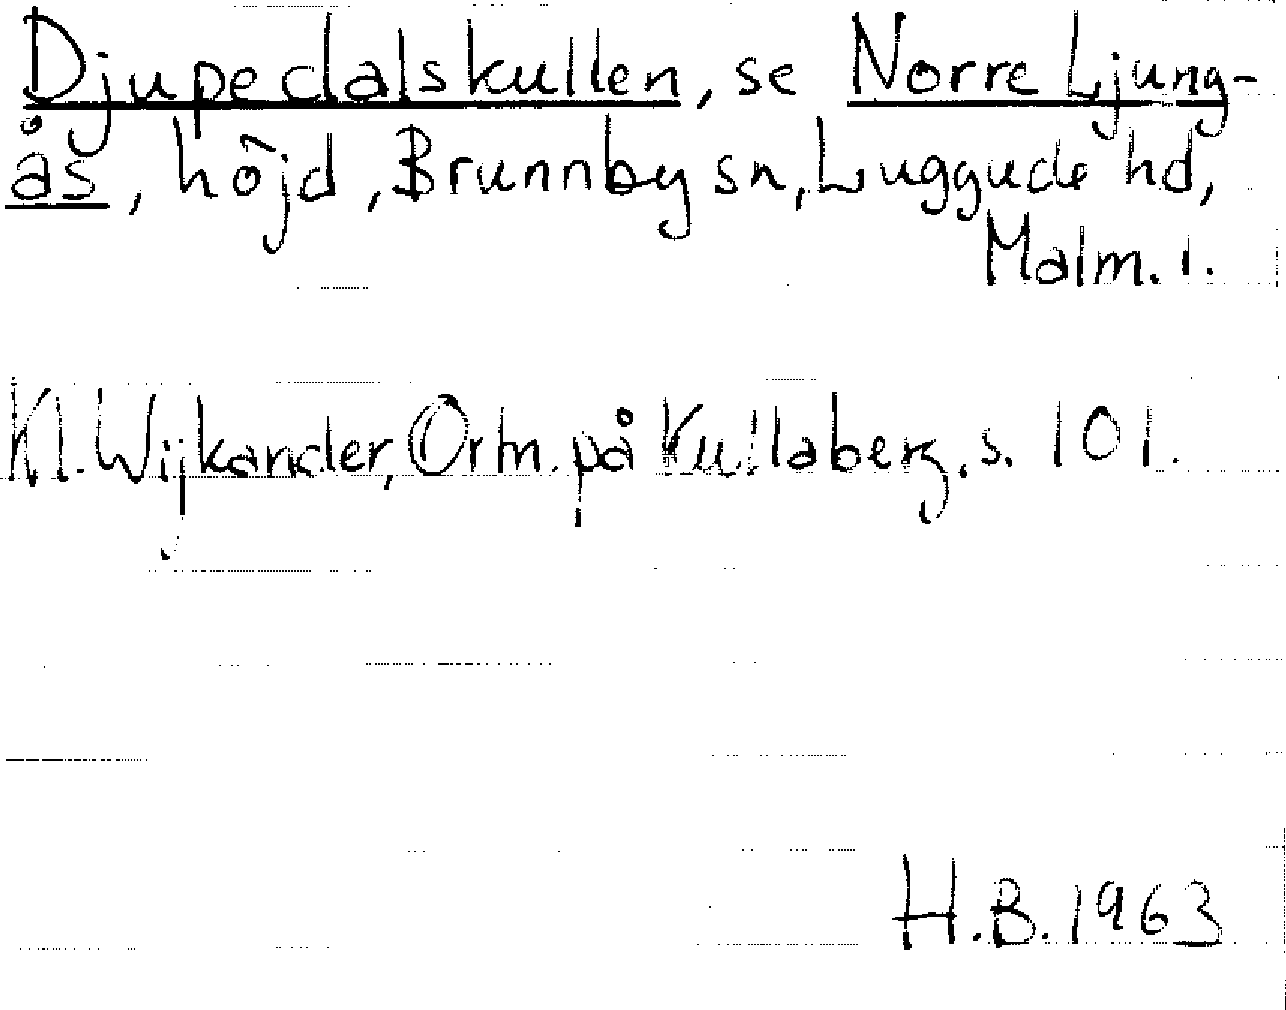 Djupedalskullen, se Norre Ljung-
ås, höjd, Brunnby sn, Luggude hd,
Malm. l.
Kl. Wijkander, Ortn. på Kullaberg, s. 101.
H.B. 1963